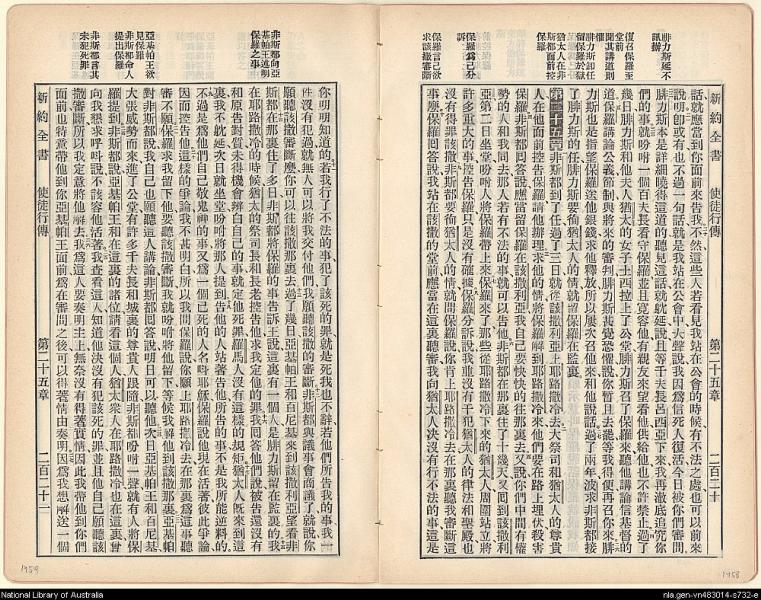 新約全書 使徒行傳 第二十五章 二百二十
腓力斯延不
訊辦
復召保羅至
堂前
聞其講道則
懼
腓力斯卸任
留保羅於獄
猶太人在非
斯都面前控
保羅
保羅爲己分
訴
保羅言己欲
求該撒審斷
話就應當到你面前來告我不然這些人若看見我站在公會的時候有不法之處也可以前來
說明卽或有也不過一句話就是我站在公會中大聲說我因爲信死人復活今日被你們審問
腓力斯本是詳細曉得這道的聽見這話就躭延說且等千夫長呂西亞下來我再澈底追究你
們的事就吩咐一個百夫長看守保羅並且寬容他有親友來望看他供給他也不許禁止過了
幾日腓力斯和他夫人猶太的女子土西拉上了公堂腓力斯召了保羅來聽他講論信基督的
道保羅講論公義節制與將來的審判腓力斯甚覺恐懼說你暫且去罷等我得便再召你來腓
力斯也是指望保羅送他銀錢求他釋放所以屢次召他來和他說話過了兩年波求非斯都接
了腓力斯的任腓力斯要徇猶太人的情就留保羅在監裏
第二十五章非斯都到了任過了三日就從該撒利亞上耶路撒冷去大祭司和猶太人的尊貴
人在他面前控告保羅請他辦理求他的情將保羅解到耶路撒冷來他們要在路上埋伏殺害
保羅非斯都回答說應當留保羅在該撒利亞我自己要快快的往那裏去又說你們中間有權
勢的人和我同去那人若有不法的事就可以告他非斯都在那裏住了十幾天又回到該撒利
亞第二日坐堂吩咐人將保羅帶上來保羅來了那些從耶路撒冷下來的猶太人周圍站立將
許多重大的事控告保羅只是沒有確據保羅分訴說我並沒有干犯猶太人的律法和聖殿也
沒有得罪該撒非斯都要徇猶太人的情就問保羅說你肯上耶路撒冷去在那裏聽我審斷這
事麼保羅回答說我站在該撒的堂前應當在這裏聽審我向猶太人決沒有行不法的事這是
非斯都向亞
基帕王述明
保羅之事
亞基帕王欲
見保羅
非斯都命人
提出保羅
非斯都言其
未犯死罪
你明明知道的若我行了不法的事犯了該死的罪就是死我也不辭若他們所告我的事我一
件沒有犯過就無人可以將我交付他們我願聽該撒的審斷非斯都與議事會商議了就說你
願聽該撒審斷麼你可以往該撒那裏去過了幾日亞基帕王和百尼基來到該撒利亞望看非
斯都在那裏住了多日非斯都將保羅的事告訴王說這裏有一個人是腓力斯留在監裏的我
在耶路撒冷的時候猶太的祭司長和長老控告他求我定他的罪我回答他們說被告還沒有
和原告對質未得機會辨白自己的事就定他死罪羅馬人沒有這樣的規矩猶太人旣來到這
裏我不躭延次日就坐堂吩咐將那人提到告他的人站着告他所告的事不是我所能逆料的
不過是爲他們自己敬鬼神的事又爲一個已死的人名呌耶穌保羅說他現在活著彼此爭論
因而控告他這樣的爭論我不甚明白所以我問保羅說你願上耶路撒冷去在那裏爲這事聽
審不願保羅求我留下他要聽該撒審斷我就吩咐將他留下等候我解他到該撒那裏亞基帕
對非斯都說我自己也願聽這人講論非斯都回答說明日可以聽他次日亞基帕王和百尼基
大張威勢而來進了公堂有許多千夫長和城裏的尊貴人跟隨非斯都吩咐一聲就有人將保
羅提到非斯都說亞基帕王和在這裏的諸位請看這個人猶太衆人在耶路撒冷也在這裏曾
向我懇求呼呌說不該容他活著我查看這人知道他決沒有犯該死的罪並且他自己願聽該
撒審斷所以我定意將他解去我爲這人要奏明主上無奈沒有得着實情因此我帶他到你們
面前也特意帶他到你亞基帕王面前爲在審問之後可以得著情由奏明因爲我想解送一個
新約全書 使徒行傳 第二十五章 二百二十二
1959
1958
National Library of Australia
nla.gen-vn483014-s732-e